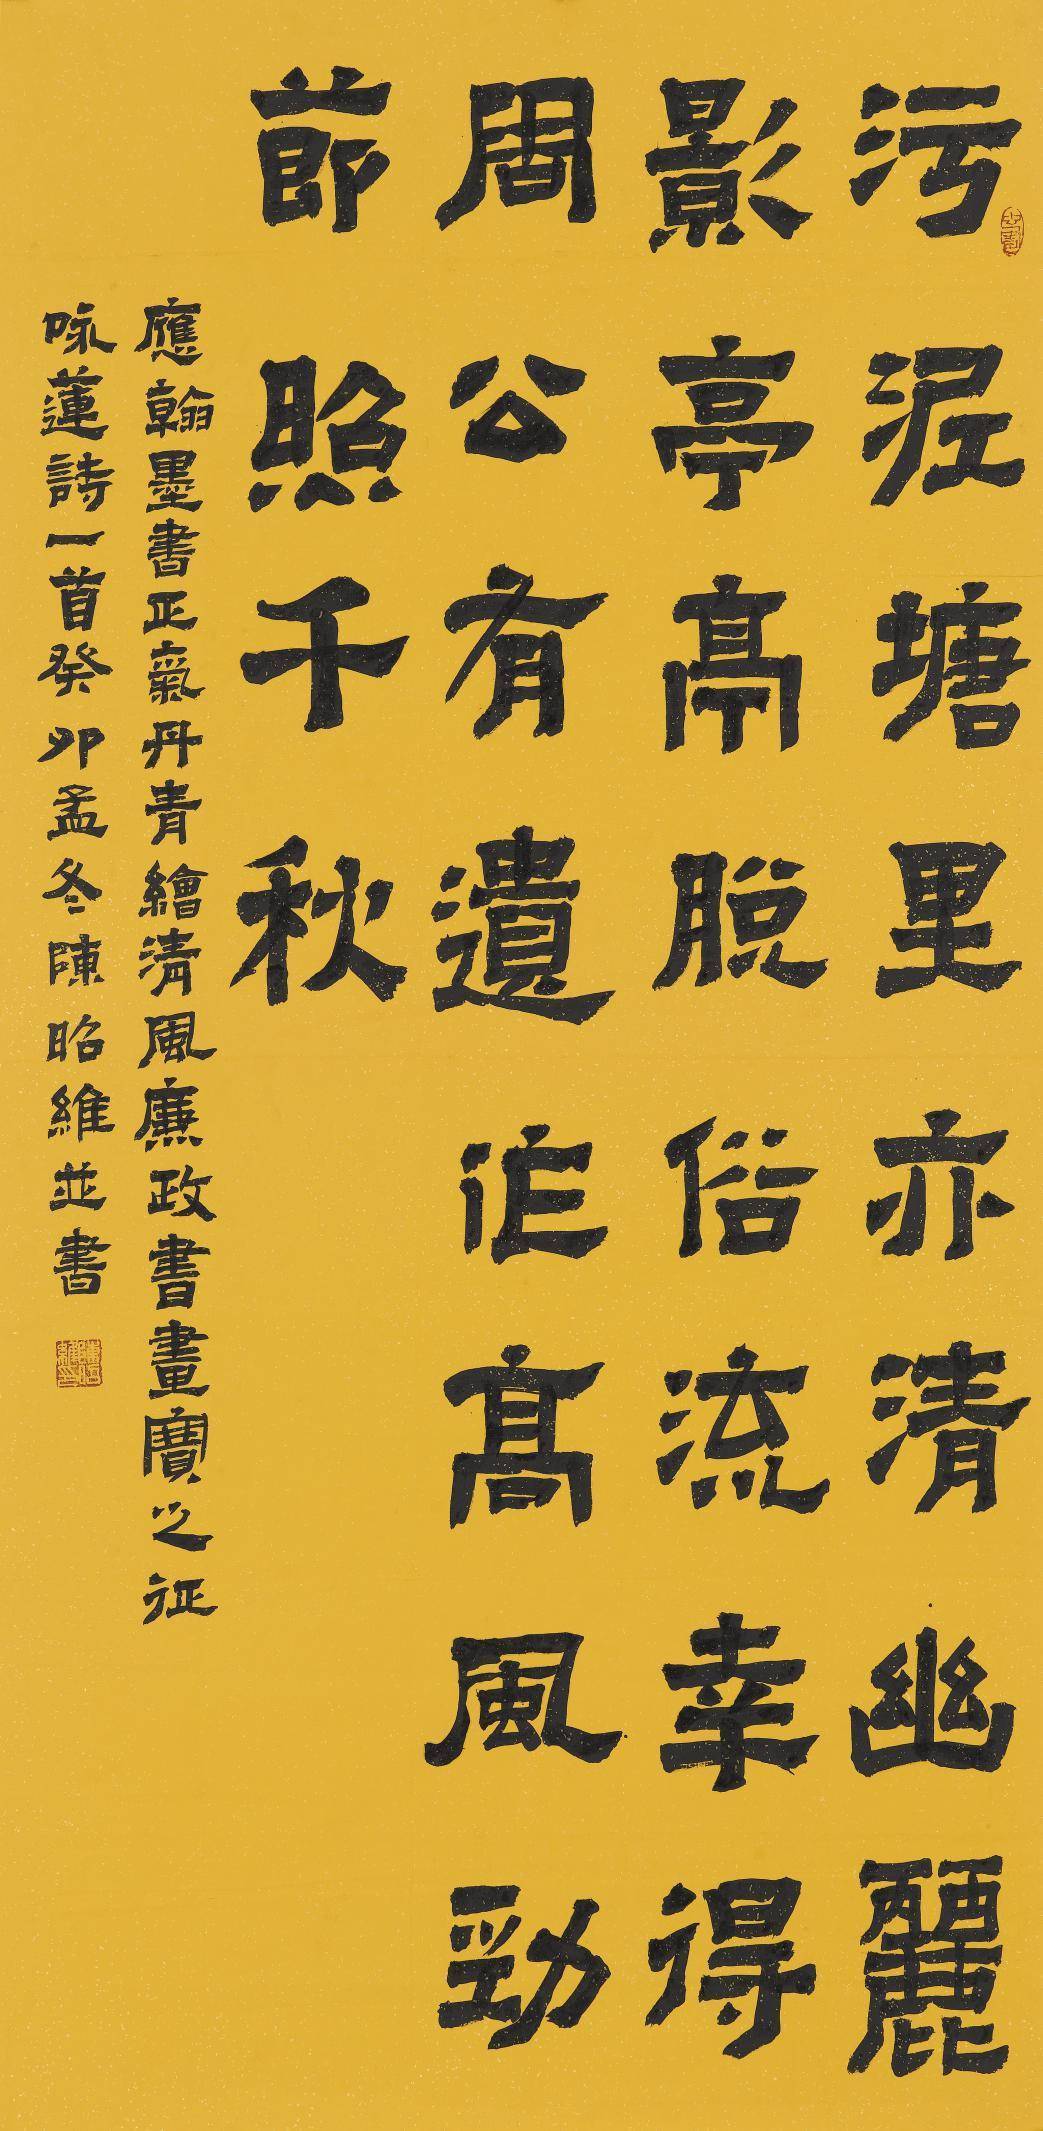 污泥塘里亦清幽麗
影亭亭脫俗流幸得
周公有遺作高風勁
節照千秋
應翰墨書正氣丹青繪清風廉政書畫賽之征
咏蓮詩一首癸卯孟冬陳昭維並書